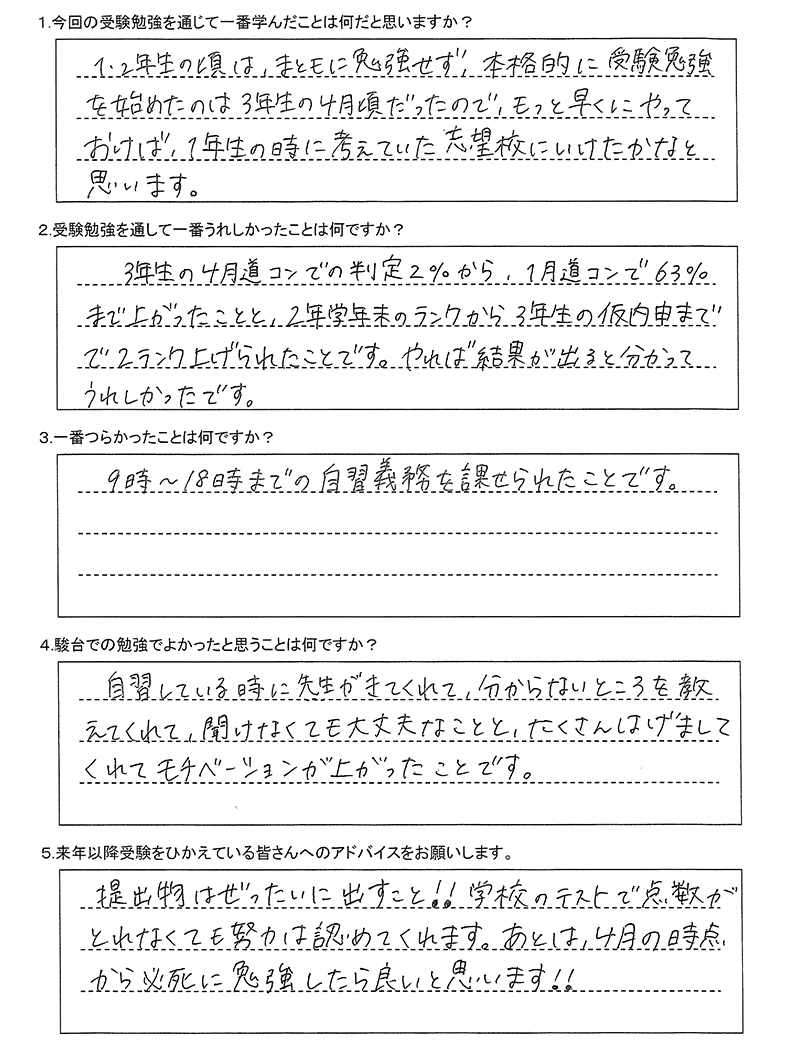 1.今回の受験勉強を通じて一番学んだことは何だと思いますか？
1・2年生の頃は、まともに勉強せず、本格的に受験勉強
を始めたのは3年生の4月頃だったので、もっと早くにやって
おけば、1年生の時に考えていた志望校にいけたかなと
思います。
2.受験勉強を通して一番うれしかったことは何ですか？
3年生の4月道コンでの判定2%から、1月道コンで63%
まで上がったことと、2年学年末のランクから3年生の仮内申まで
で2ランク上げられたことです。やれば結果が出ると分かって
うれしかったです。
3.一番つらかったことは何ですか？
9時～18時までの自習義務を課せられたことです。
4.駿台での勉強でよかったと思うことは何ですか？
自習している時に先生がきてくれて、分からないところを教
えてくれて、聞けなくても大丈夫なことと、たくさんはげまして
くれてモチベーションが上がったことです。
5.来年以降受験をひかえている皆さんへのアドバイスをお願いします。
提出物はぜったいに出すこと!!学校のテストで点数が
とれなくても努力は認めてくれます。あとは、4月の時点
から必死に勉強したら良いと思います!!